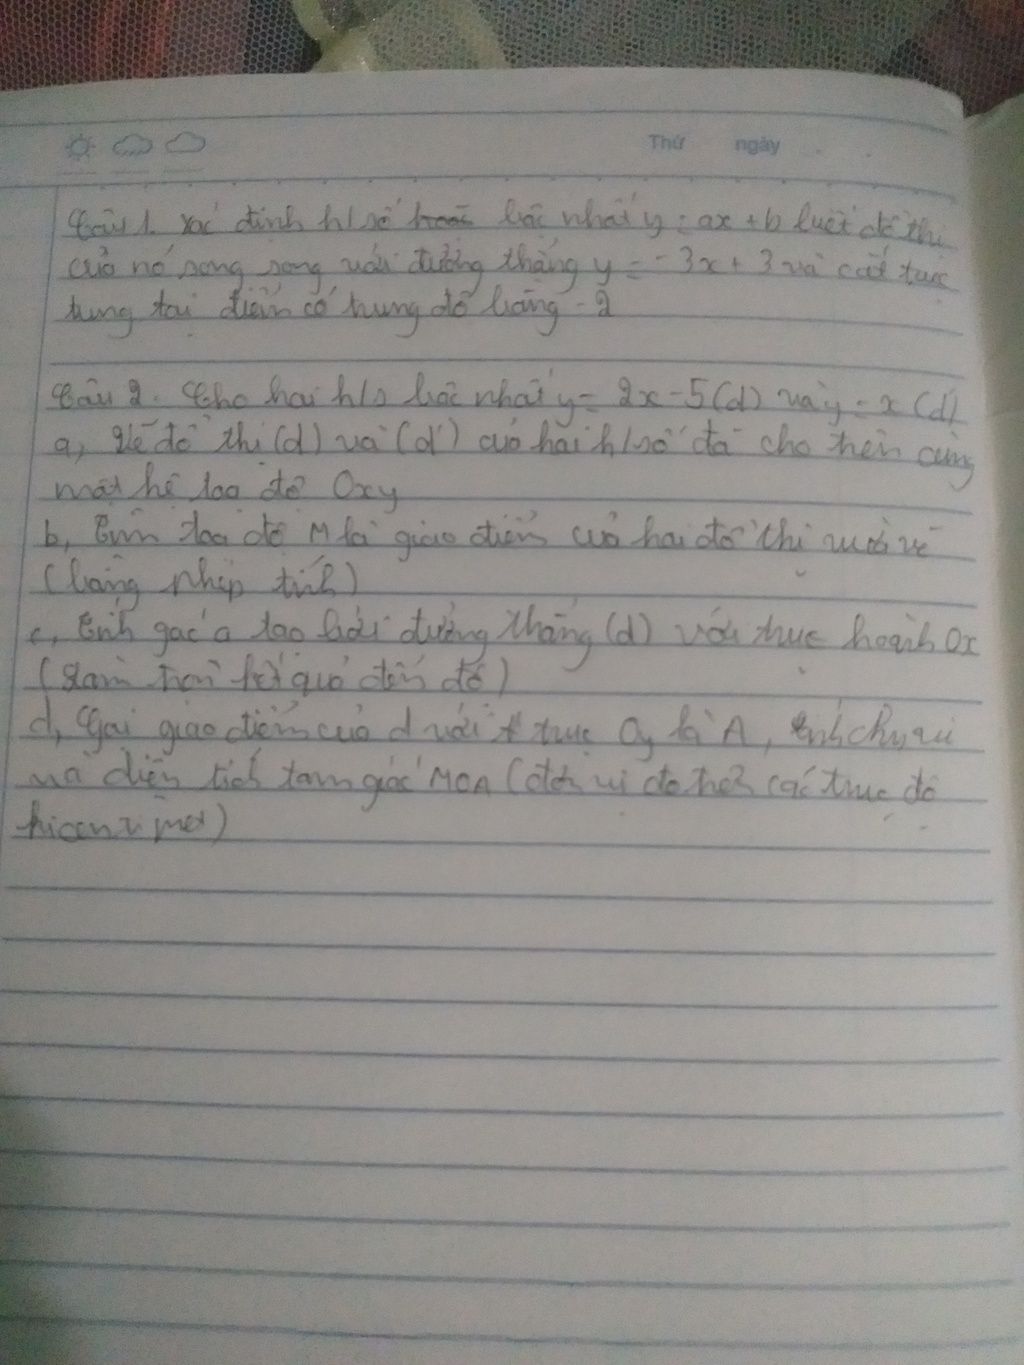 Thứ ngày
Câu 1. Xác định h/số bậc nhất y = ax + b biết đồ thị
của nó song song với đường thẳng y = -3x + 3 và cắt trục
tung tại điểm có tung độ bằng -2
Câu 2. Cho hai h/s bậc nhất y = 2x - 5 (d) và y = x (d')
a, Vẽ đồ thị (d) và (d') của hai h/số đã cho trên cùng
một hệ toạ độ Oxy
b, Tìm toạ độ M là giao điểm của hai đồ thị vừa vẽ
(bằng phép tính)
c, Tính góc a tạo bởi đường thẳng (d) với trục hoành Ox
(làm tròn kết quả đến độ)
d, Gọi giao điểm của d với trục Oy là A, tính chu vi
và diện tích tam giác MOA (đơn vị đo trên các trục độ